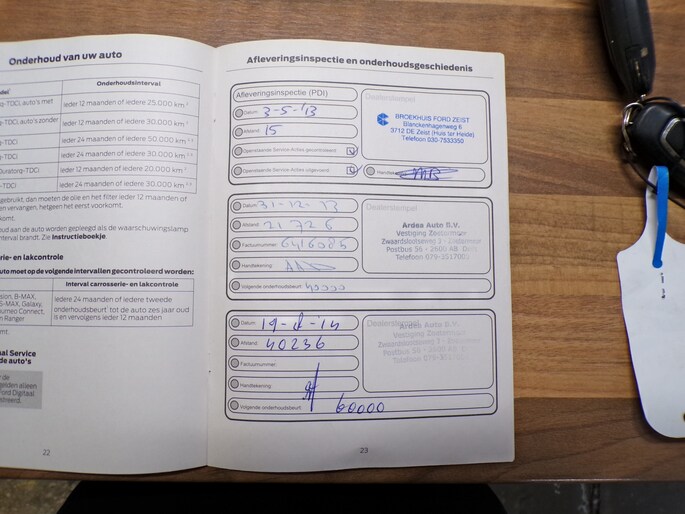 Onderhoud van uw auto
Onderhoudsinterval
-TDCi, auto's met
Ieder 12 maanden of iedere 25.000 km
-TDCi, auto's zonder
Ieder 12 maanden of iedere 30.000 km
-TDCi)
Ieder 24 maanden of iedere 50.000 km
-TDCi)
Ieder 24 maanden of iedere 30.000 km
Duratorq-TDCi)
Ieder 12 maanden of iedere 20.000 km
-TDCi)
Ieder 24 maanden of iedere 30.000 km
gebruikt, dan moeten de olie en het filter ieder 12 maanden of
en vervangen, hetgeen het eerst voorkomt.
komt.
oud aan de auto worden gepleegd als de waarschuwingslamp
interval brandt. Zie Instructieboekje.
rie- en lakcontrole
auto moet op de volgende intervallen gecontroleerd worden:
Interval carrosserie- en lakcontrole
B-MAX,
S-MAX, Galaxy,
Connect,
Ranger
Iedere 24 maanden of iedere tweede
onderhoudsbeurt tot de auto zes jaar oud
is en vervolgens ieder 12 maanden
komt.
al Service
de auto's
de
gelden alleen
Ford Digitaal
22
Afleveringsinspectie en onderhoudsgeschiedenis
Afleveringsinspectie (PDI)
Datum: 3-5-'13
Afstand: 15
Openstaande Service-Acties gecontroleerd:
Openstaande Service-Acties uitgevoerd:
Dealerstempel
BROEKHUIS FORD ZEIST
Blanckenhagenweg 6
3712 DE Zeist (Huis ter Heide)
Telefoon 030-7533350
Handtekening:
Datum: 31-12-13
Afstand: 21726
Factuurnummer: 6416085
Handtekening:
Volgende onderhoudsbeurt: 40000
Dealerstempel
Ardea Auto B.V.
Vestiging Zoetermeer
Zwaardslootseweg 3 - Zoetermeer
Postbus 56 - 2600 AB Delft
Telefoon 079-351700
Datum:
Afstand: 40236
Factuurnummer:
Handtekening:
Volgende onderhoudsbeurt: 60000
Dealerstempel
Ardea Auto B.V.
Vestiging Zoetermeer
Zwaardslootseweg 3 - Zoetermeer
23